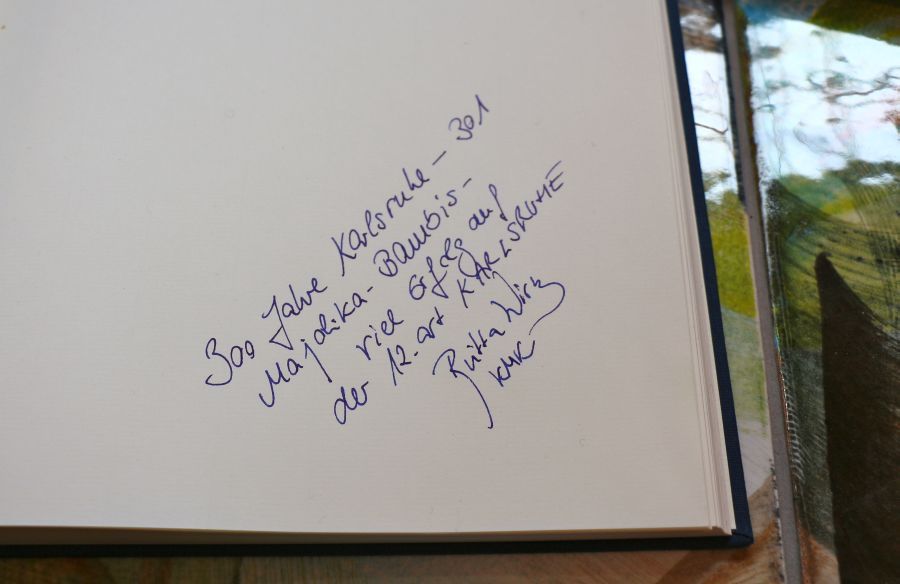 300 Jahre Karlsruhe – 301
Majolika - Bambis -
viel Erfolg auf
der 12. art KARLSRUHE
Britta Wirtz
KMK